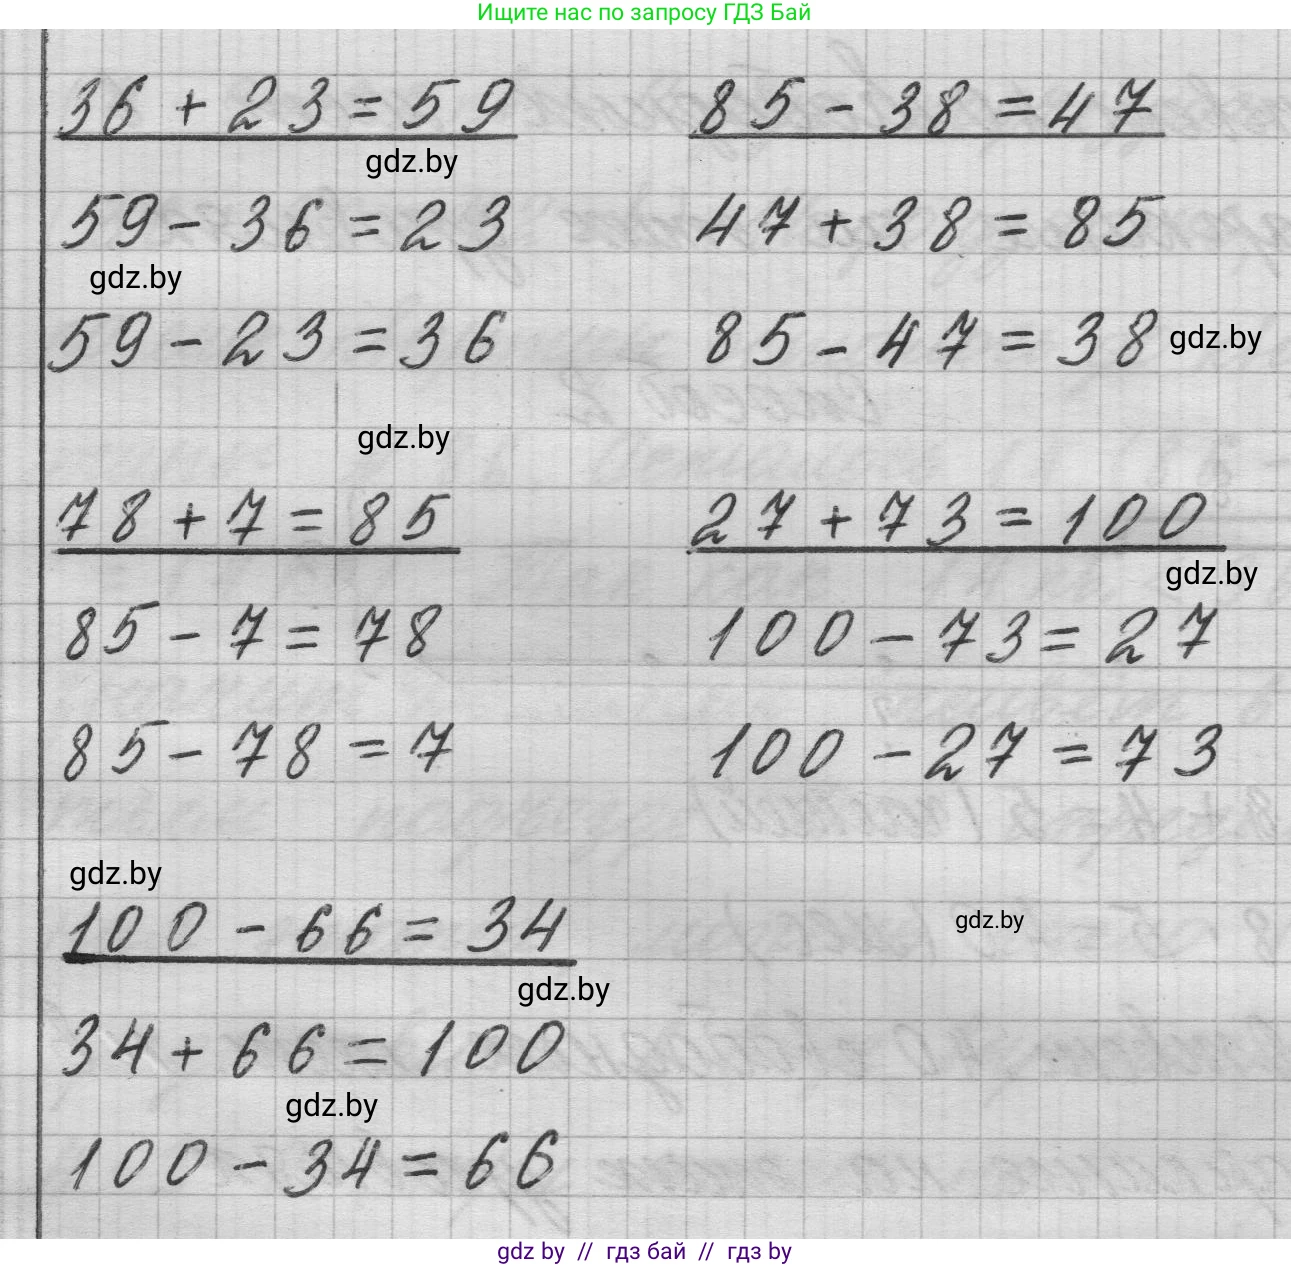 Ищите нас по запросу ГДЗ Бай
36 + 23 = 59
85 - 38 = 47
gdz.by
59 - 36 = 23
47 + 38 = 85
gdz.by
59 - 23 = 36
85 - 47 = 38
gdz.by
gdz.by
78 + 7 = 85
27 + 73 = 100
gdz.by
85 - 7 = 78
100 - 73 = 27
85 - 78 = 7
100 - 27 = 73
gdz.by
100 - 66 = 34
gdz.by
gdz.by
34 + 66 = 100
gdz.by
100 - 34 = 66
gdz by // гдз бай // гдз by